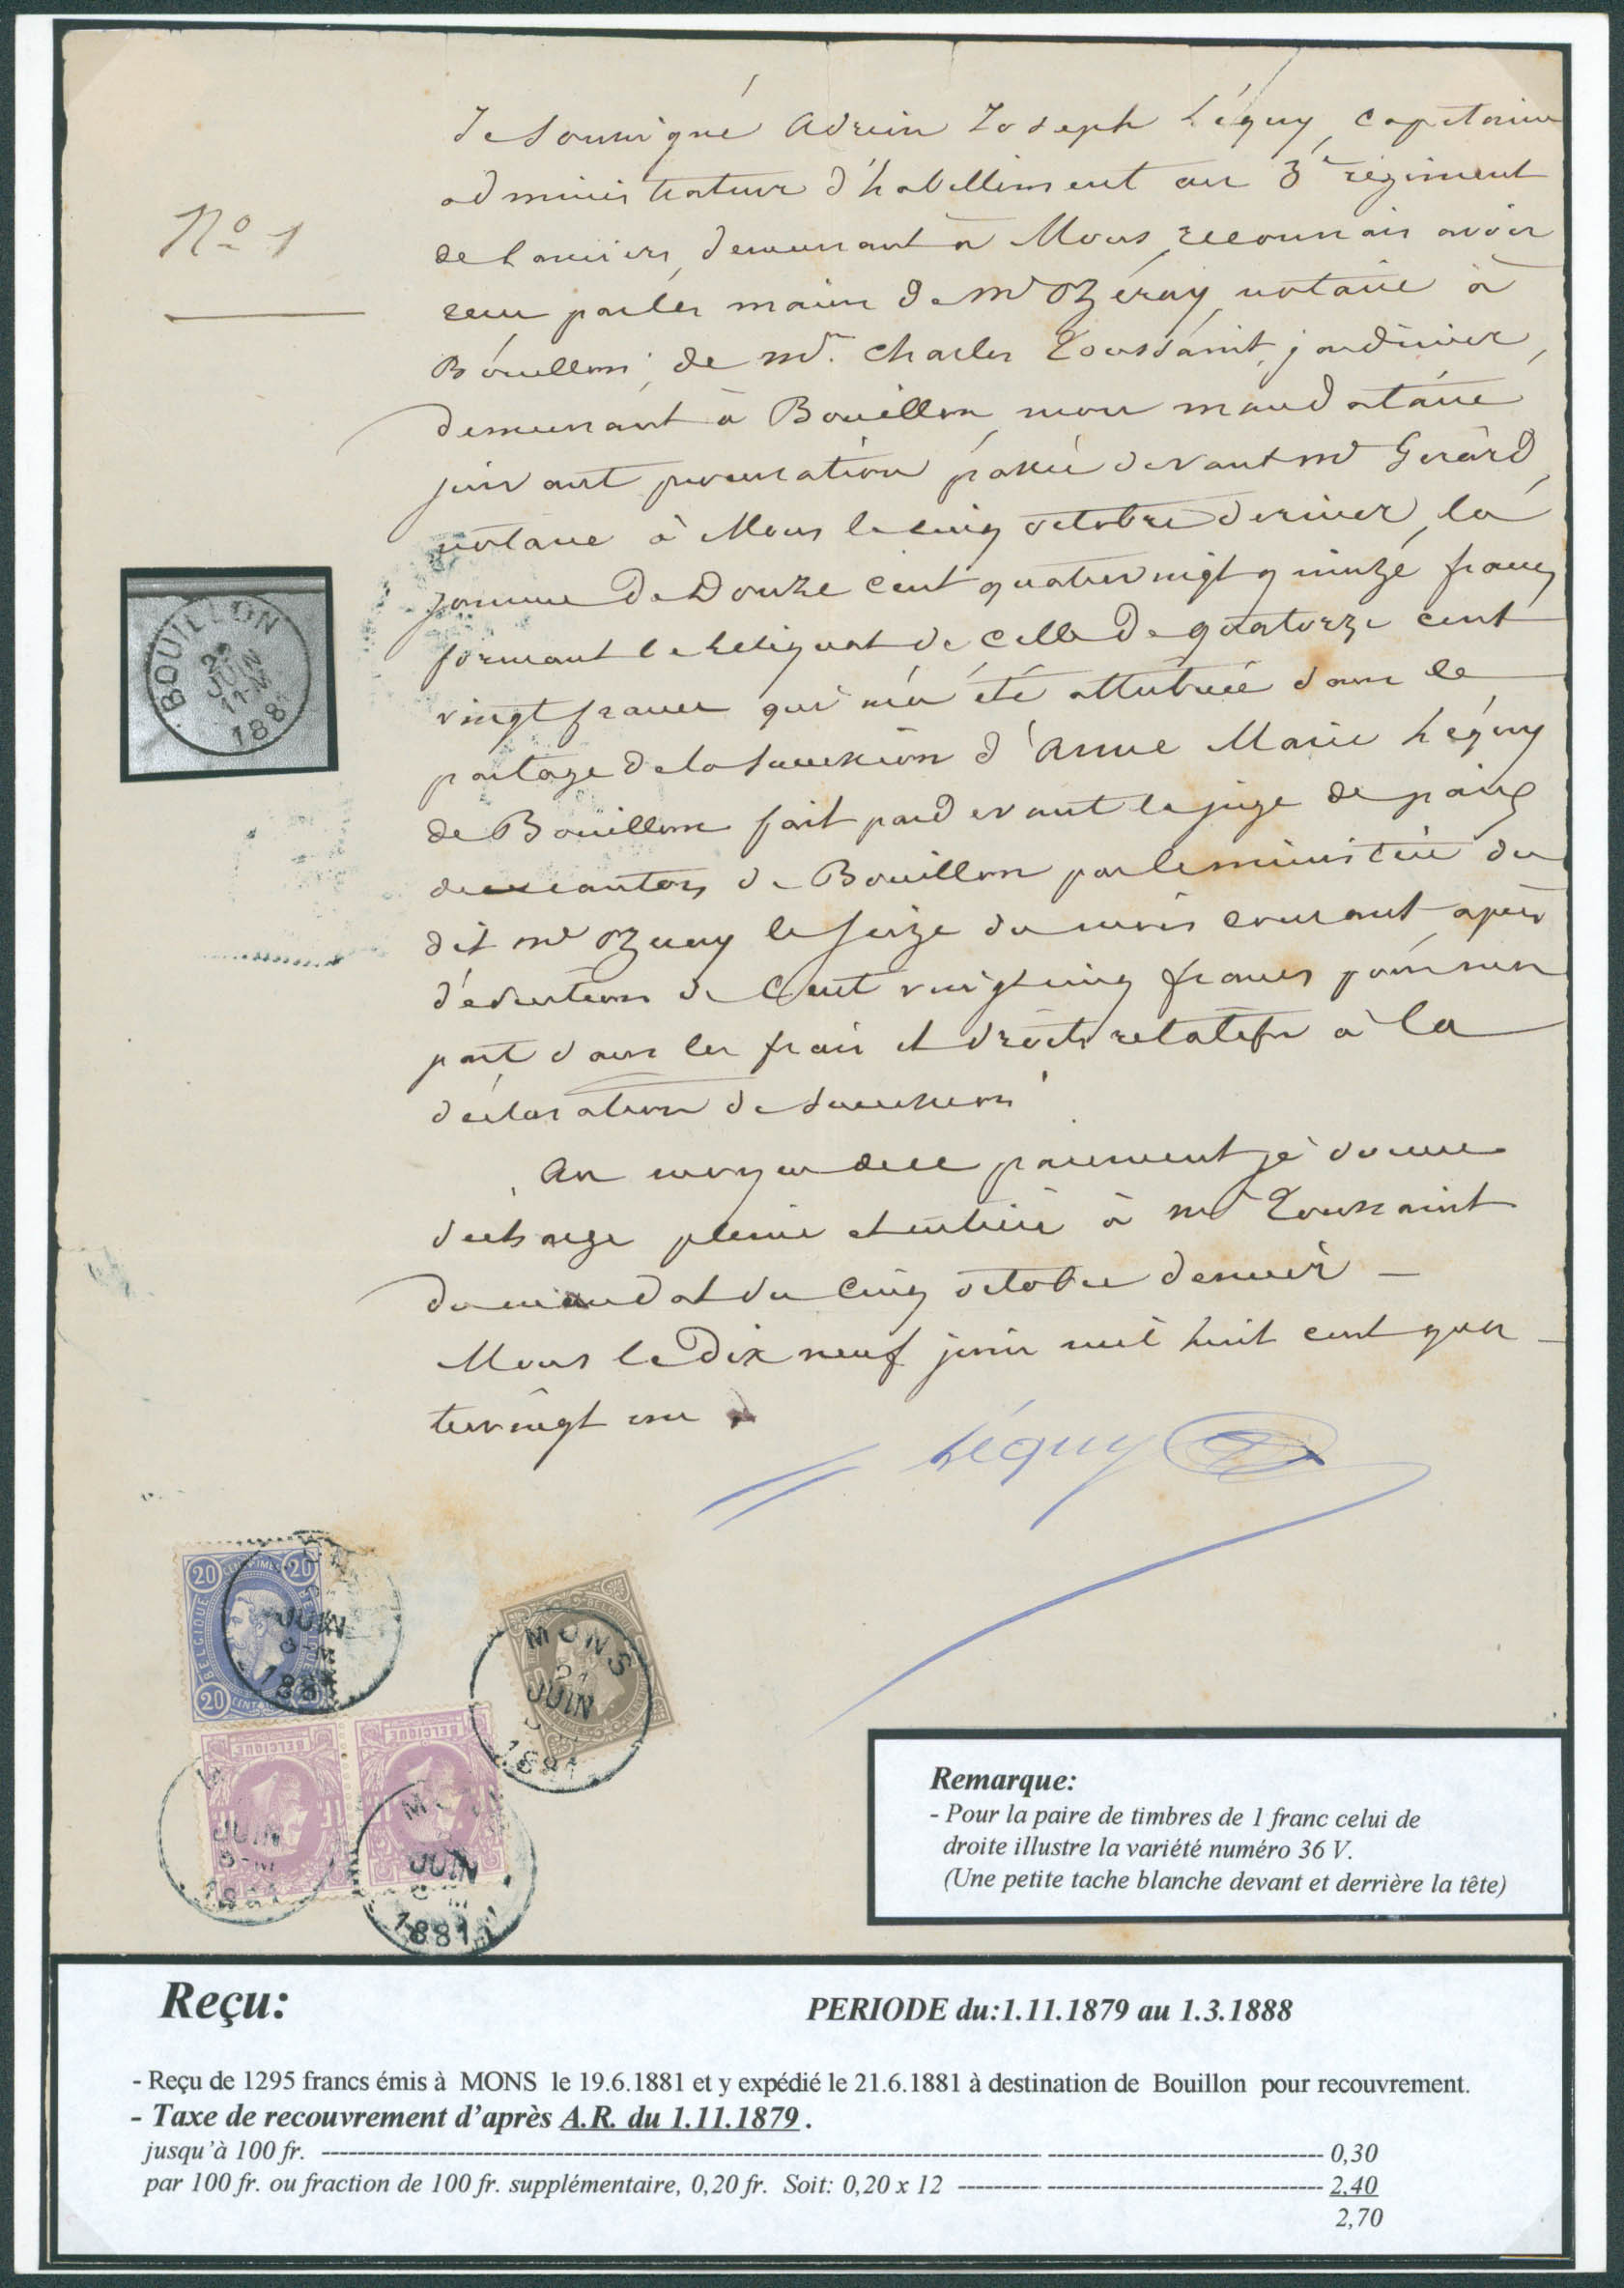 Je soussigné Adrien Joseph Léguy, capitaine
administrateur d'habillement au 3e régiment
de lanciers, demeurant à Mons, reconnais avoir
reçu par les mains de Mr Ozeray, notaire à
Bouillon, de Mr. Charles Toussaint, jardinier,
demeurant à Bouillon, mon mandataire
suivant procuration passée devant Mr Gerard,
notaire à Mons le cinq octobre dernier, la
somme de Douze cent quatrevingt quinze francs
formant le reliquat de celle de quatorze cent
vingt francs qui m'a été attribuée dans le
partage de la succession d'Anne Marie Léguy
de Bouillon fait pardevant le juge de paix
du canton de Bouillon par le ministère du
dit Mr Ozeray le seize du mois courant après
déduction de Cent vingt cinq francs pour mon
part dans les frais et droits relatifs à la
déclaration de succession
Au moyen de ce paiement je donne
décharge pleine et entière à Mr Toussaint
du mandat du Cinq octobre dernier –
Mons le Dix neuf juin mil huit cent qua–
trevingt un
Léguy
No 1
BOUILLON
JUIN
11-M
188
20 CENTIMES 20
BELGIQUE
20
JUIN
8-M
1881
MONS
21
JUIN
1881
BELGIQUE
BELGIQUE
JUIN
8-M
1881
M
JUIN
1881
Remarque:
- Pour la paire de timbres de 1 franc celui de
droite illustre la variété numéro 36 V.
(Une petite tache blanche devant et derrière la tête)
Reçu:
PERIODE du:1.11.1879 au 1.3.1888
- Reçu de 1295 francs émis à MONS le 19.6.1881 et y expédié le 21.6.1881 à destination de Bouillon pour recouvrement.
- Taxe de recouvrement d'après A.R. du 1.11.1879.
jusqu'à 100 fr. ---------- 0,30
par 100 fr. ou fraction de 100 fr. supplémentaire, 0,20 fr. Soit: 0,20 x 12 ---------- 2,40
2,70